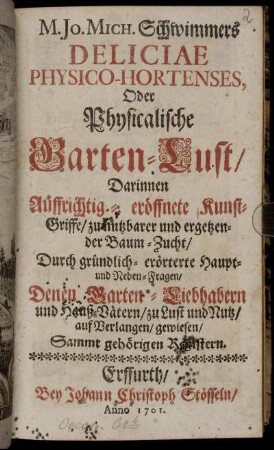 2
M. JO. MICH. Schwimmers
DELICIAE
PHYSICO-HORTENSES,
Oder
Physicalische
Garten-Lust/
Darinnen
Auffrichtig- eröffnete Kunst-
Griffe/ zu nutzbarer und ergetzen-
der Baum-Zucht/
Durch gründlich- erörterte Haupt-
und Neben-Fragen/
Denen Garten-Liebhabern
und Hauß-Vätern/ zu Lust und Nutz/
auf Verlangen/ gewiesen/
Sammt gehörigen Registern.
Erffurth/
Bey Johann Christoph Stösseln/
Anno 1701.